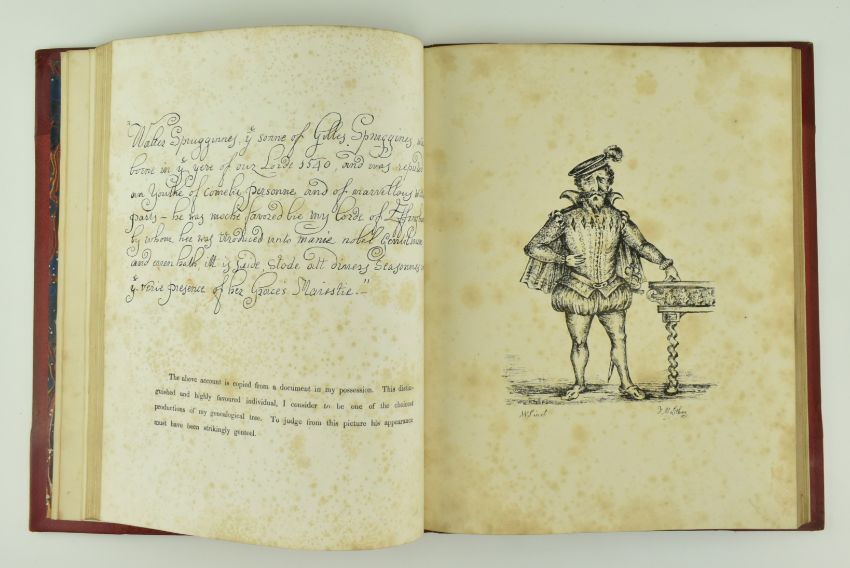 "Walter Spruggines, yᵉ sonne of Gilles Spruggines, was
borne in yᵉ yere of our Lorde 1540, and was reputed
an Youthe of comelie personne and of marvellous
parts – he was moche favored bie my lorde of
by whom hee was introduced unto manie nobel
and even hath itt is saide, stode att divers Seasonnes
yᵉ verie presence of her Grace's Majestie."
The above account is copied from a document in my possession. This distin-
guished and highly favoured individual, I consider to be one of the choicest
productions of my genealogical tree. To judge from this picture his appearance
must have been strikingly genteel.